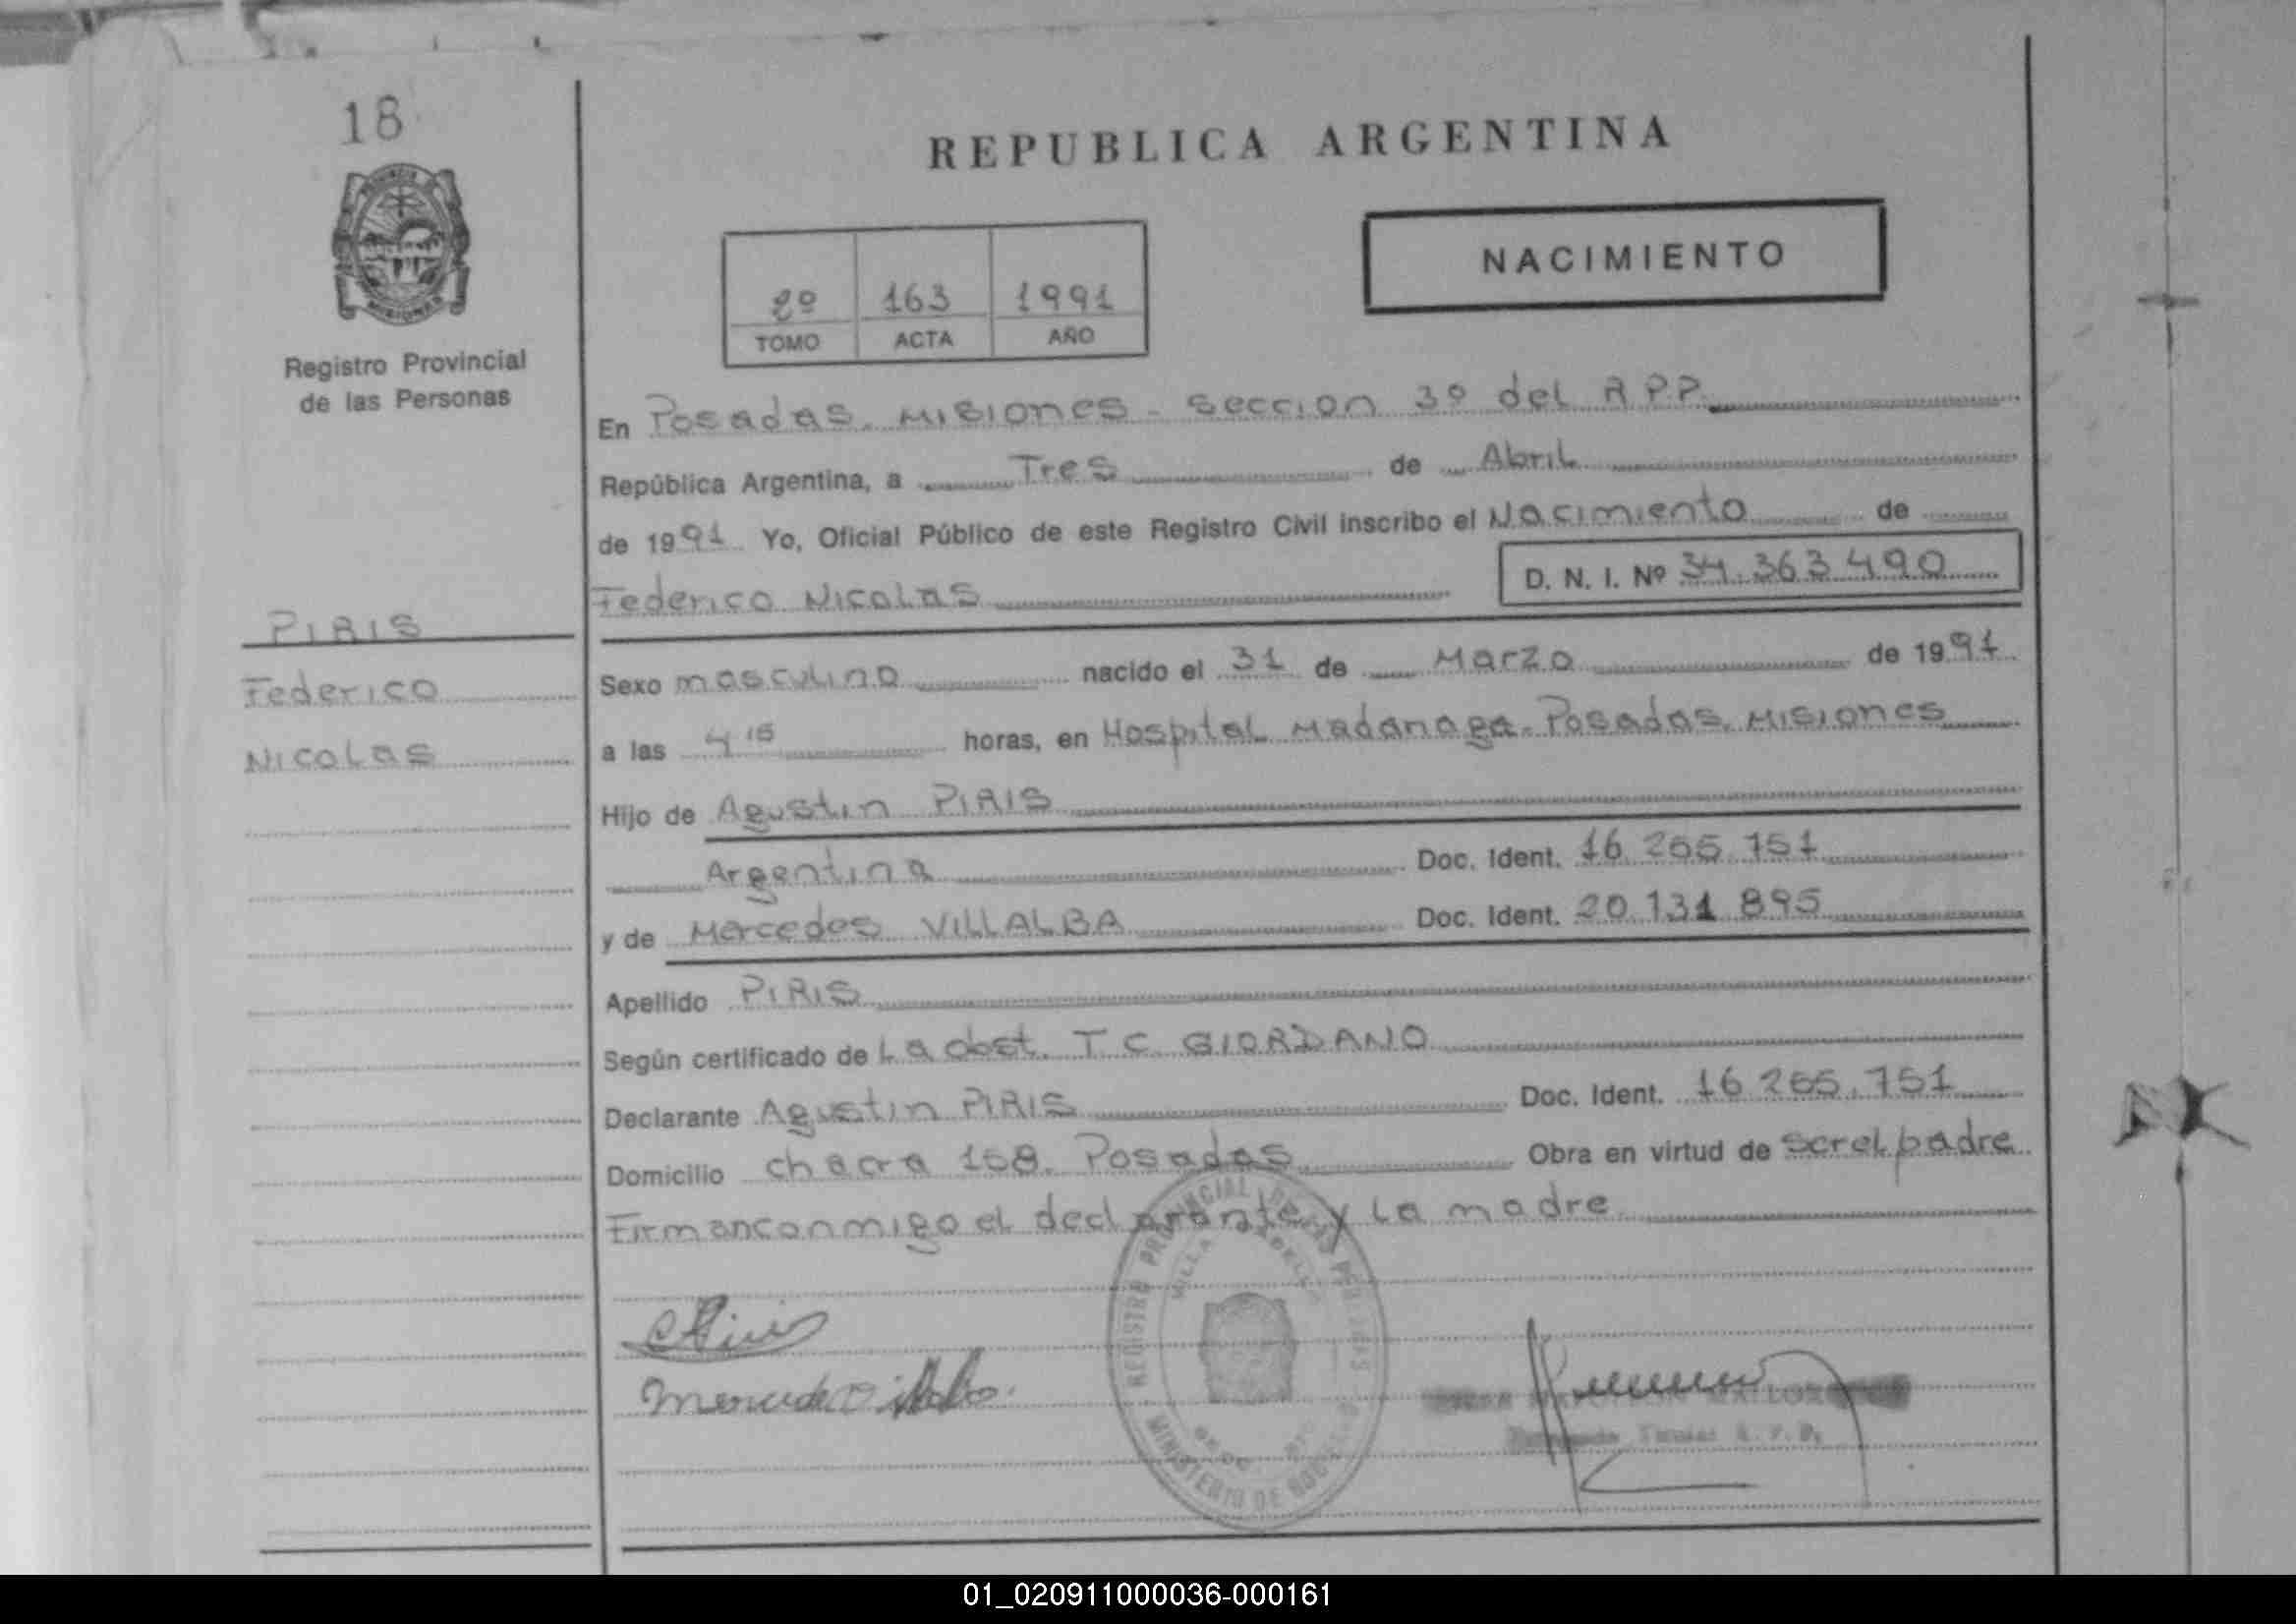 18
REPUBLICA ARGENTINA
NACIMIENTO
2º 163 1991
TOMO ACTA AÑO
Registro Provincial
de las Personas
En Posadas. Misiones - Seccion 3º del R.P.P.
República Argentina, a Tres de Abril
de 1991 Yo, Oficial Público de este Registro Civil inscribo el Nacimiento de
Federico Nicolas D. N. I. Nº 34.363.490
PIRIS
Federico
Nicolas
Sexo masculino nacido el 31 de Marzo de 1991
a las 4 15 horas, en Hospital Madariaga. Posadas. Misiones
Hijo de Agustin PIRIS
Argentina Doc. Ident. 16.265.751
y de Mercedes VILLALBA Doc. Ident. 20.131.895
Apellido PIRIS
Según certificado de La obst. T.C. GIORDANO
Declarante Agustin PIRIS Doc. Ident. 16.265.751
Domicilio chacra 158. Posadas Obra en virtud de ser el padre
Firman conmigo el declarante y la madre
REGISTRO PROVINCIAL DE LAS PERSONAS
VILLA
MINISTERIO DE GOBIERNO
Titular R. P. P.
01_020911000036-000161